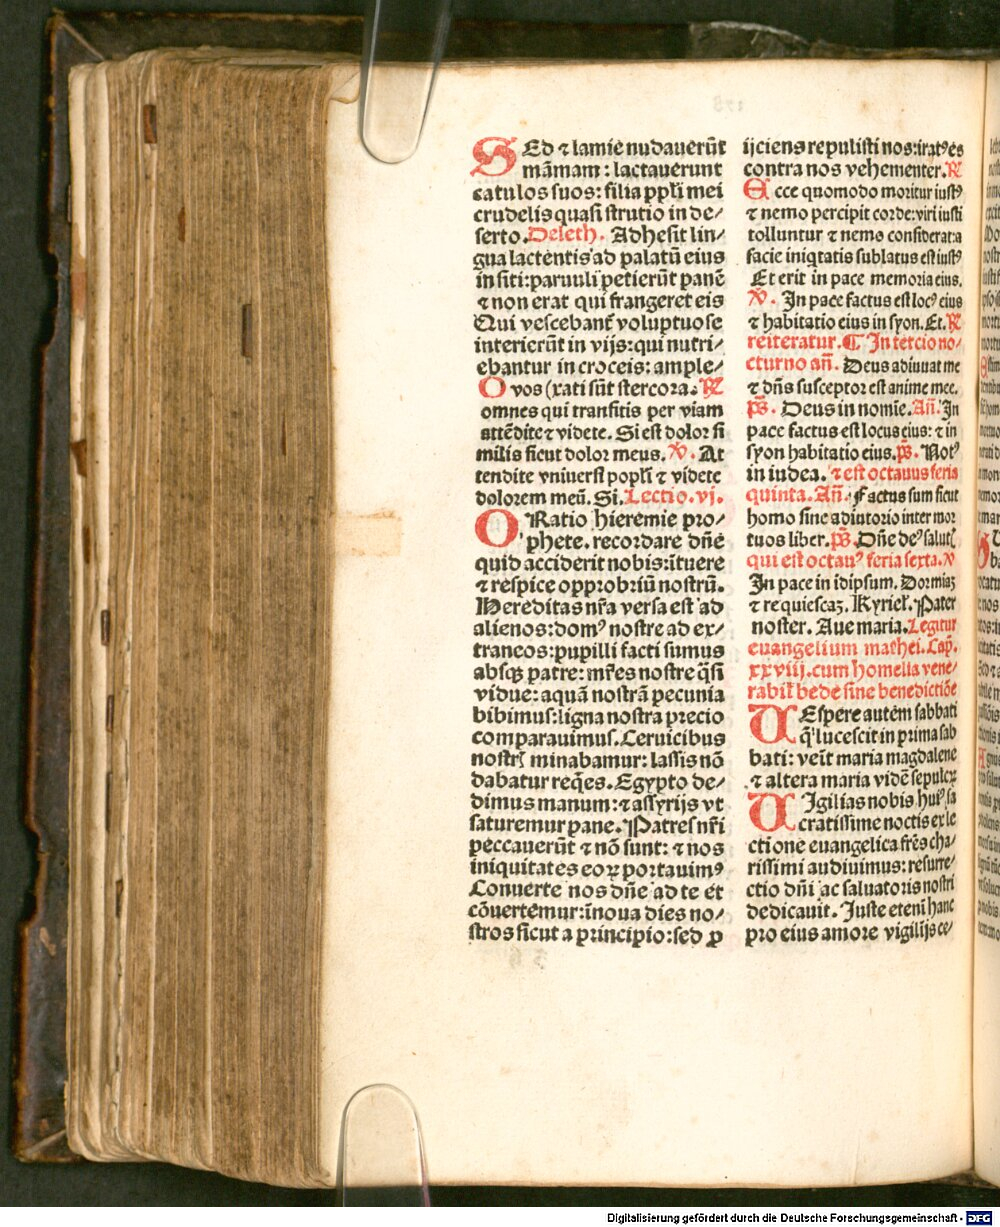 SEd ⁊ lamie nudauerūt
māmam: lactauerunt
catulos suos: filia ppl̄i mei
crudelis quasi strutio in de⸗
serto. Deleth. Adhesit lin⸗
gua lactentis ad palatū eius
in siti: paruuli petierūt panē
⁊ non erat qui frangeret eis
Qui vescebant̄ voluptuose
interierūt in vijs: qui nutri⸗
ebantur in croceis: ample⸗
O vos (xati sūt stercora. ℟
omnes qui transitis per viam
attēdite ⁊ videte. Si est dolor si
milis sicut dolor meus. ℣. At
tendite vniuersi popl̄i ⁊ videte
dolorem meū. Si. Lectio. vj.
ORatio hieremie pro⸗
phete. recordare dn̄e
quid acciderit nobis: ituere
⁊ respice opprobriū nostrū.
Hereditas nr̄a versa est ad
alienos: domꝰ nostre ad ex⸗
traneos: pupilli facti sumus
absqꝫ patre: mr̄es nostre q̄si
vidue: aquā nostrā pecunia
bibimus: ligna nostra precio
comparauimus. Ceruicibus
nostrꝭ minabamur: lassis nō
dabatur req̄es. Egypto de⸗
dimus manum: ⁊ assyrijs vt
saturemur pane. Patres nr̄i
peccauerūt ⁊ nō sunt: ⁊ nos
iniquitates eoꝝ portauimꝰ
Conuerte nos dn̄e ad te et
cōuertemur: īnoua dies no⸗
stros sicut a principio: sed ꝓ
ijciens repulisti nos: iratꝰ es
contra nos vehementer. ℟
Ecce quomodo moritur iustꝰ
⁊ nemo percipit corde: viri iusti
tolluntur ⁊ nemo considerat: a
facie iniq̇tatis sublatus est iustꝰ
Et erit in pace memoria eius.
℣. In pace factus est locꝰ eius
⁊ habitatio eius in syon. Et. ℟
reiteratur. ¶ In tercio no⸗
cturno an̄. Deus adiuuat me
⁊ dn̄s susceptor est anime mee.
p̄s. Deus in nomīe. An̄. In
pace factus est locus eius: ⁊ in
syon habitatio eius. p̄s. Notꝰ
in iudea. ⁊ est octauus feria
quinta. An̄. Factus sum sicut
homo sine adiutorio inter mor
tuos liber. p̄s. Dn̄e deꝰ salutꝭ
qui est octauꝰ feria sexta. ℣
In pace in idipsum. Dormiaꝫ
⁊ requiescaꝫ. Kyriel̄. Pater
noster. Aue maria. Legitur
euangelium mathei. Cap̄.
xxviij. cum homelia vene⸗
rabil̄ bede sine benedictiōe
UEspere autem sabbati
q̄ lucescit in prima sab
bati: venīt maria magdalene
⁊ altera maria videē sepulcꝝ
UIgilias nobis huiꝰ sa
cratissime noctis ex le
ctione euangelica fr̄es cha⸗
rissimi audiuimus: resurre⸗
ctio dn̄i ac saluatoris nostri
dedicauit. Juste etenī hanc
pro eius amore vigilijs ce⸗
Digitalisierung gefördert durch die Deutsche Forschungsgemeinschaft - DFG